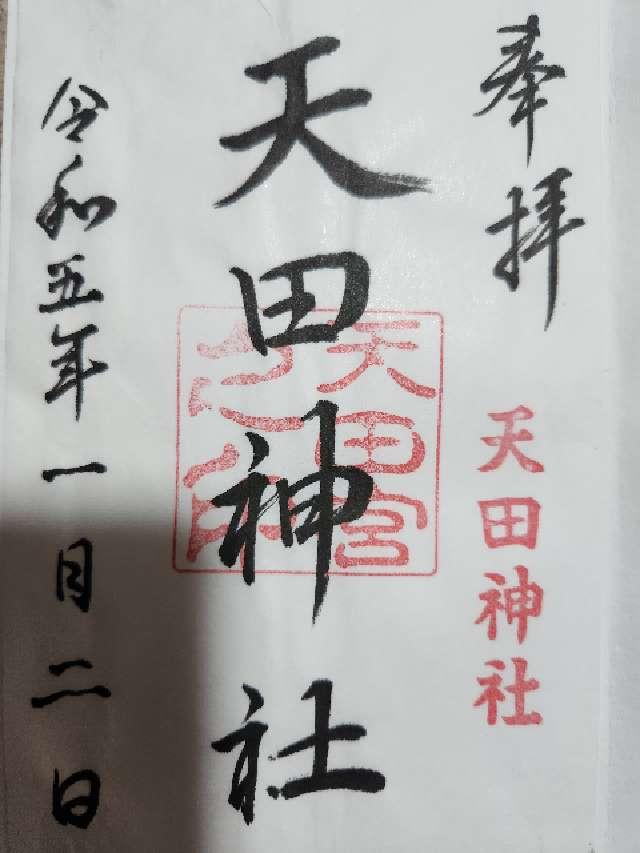 奉拝
天田神社
天田神社
天田宮
令和五年一月二日